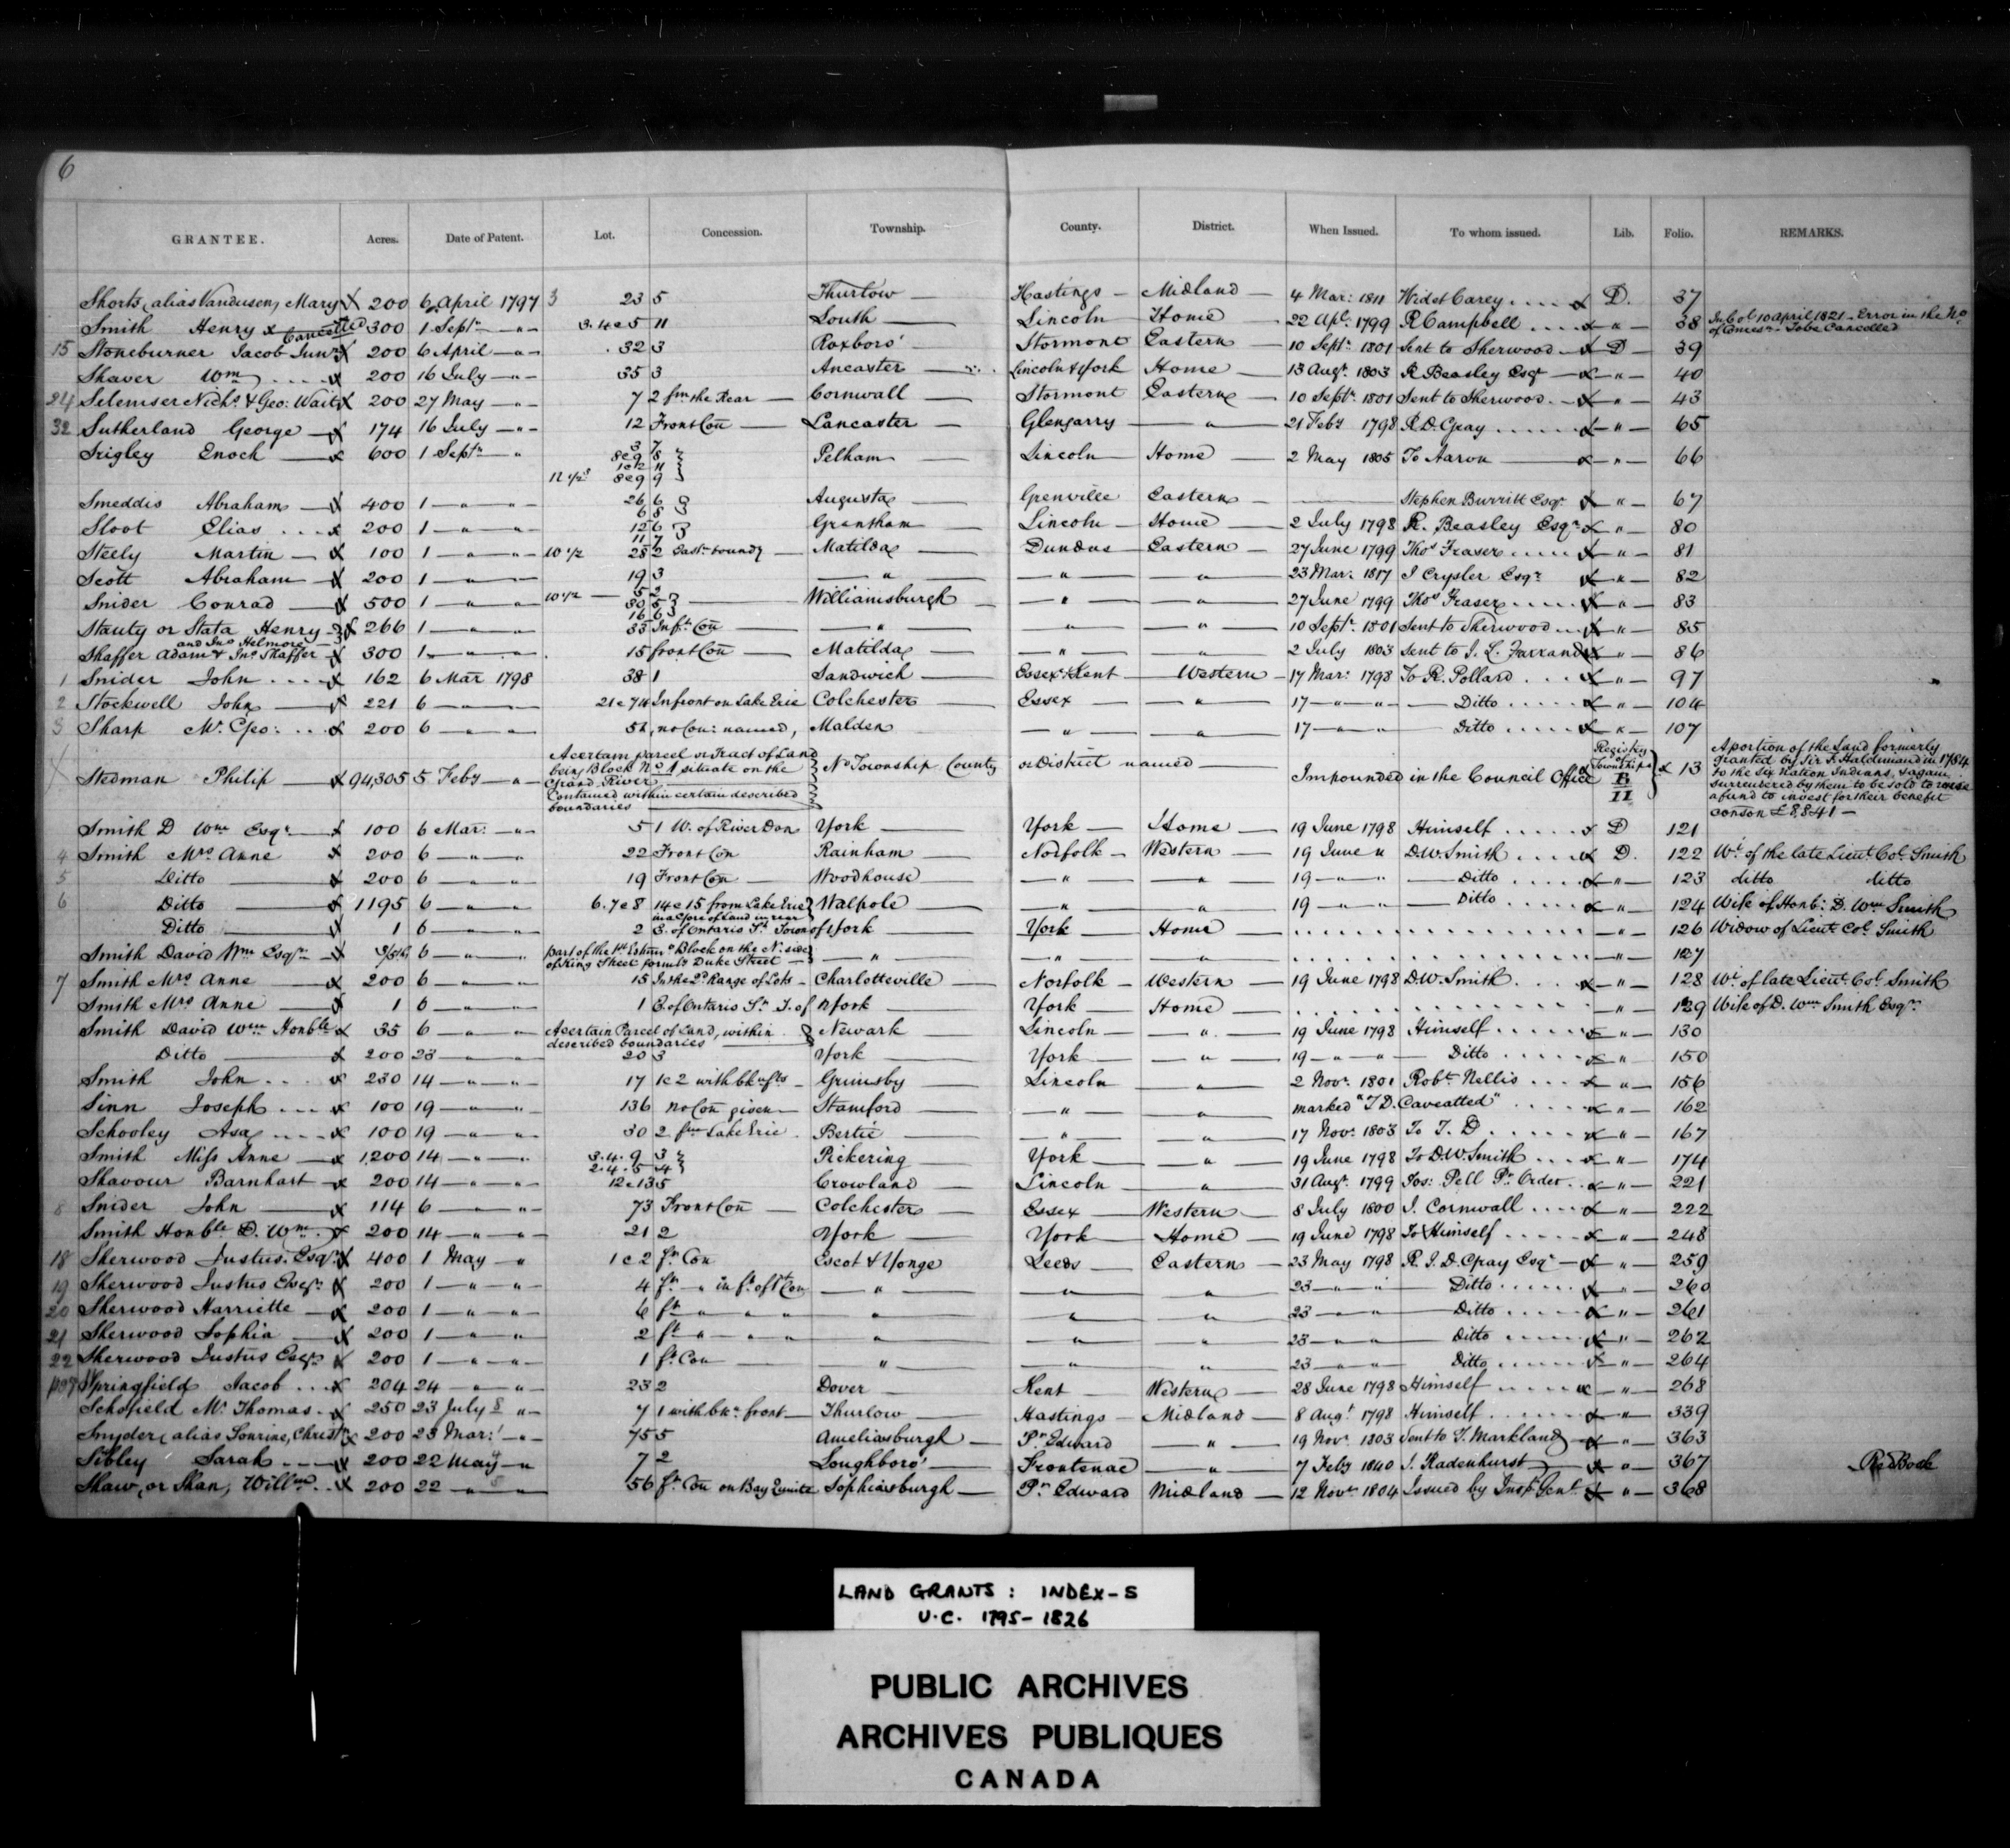 6
GRANTEE. Acres. Date of Patent. Lot. Concession. Township. County. District. When Issued. To whom issued. Lib. Folio. REMARKS.
Shorts, alias Vandusen, Mary 200 6 April 1797 3 23 5 Thurlow Hastings Midland 4 Mar: 1811 Widst Carey D. 37
Smith Henry x Cancelled 300 1 Septr " 3.4 e 5 11 Louth Lincoln Home 22 Apl. 1799 R Campbell " 38 In Col 10 april 1821 - Error in the No of Acres - To be Cancelled
15 Stoneburner Jacob Junr 200 6 April " 32 3 Roxboro' Stormont Eastern 10 Septr 1801 Sent to Sherwood D 39
Shaver Wm 200 16 July " 35 3 Ancaster Lincoln & York Home 13 Augt. 1803 R Beasley Esqr " 40
24 Selemser Nichs & Geo: Wait 200 27 May " 7 2 fm the Rear Cornwall Stormont Eastern 10 Septr 1801 Sent to Sherwood " 43
32 Sutherland George 174 16 July " 12 Front Con Lancaster Glengarry " 21 Feby 1798 R. D. Gray " 65
Srigley Enoch 600 1 Septr " 3 7 Pelham Lincoln Home 2 May 1805 To Aaron " 66
8 e 9 8
1 e 2 11
12 1/2 8 e 9 9
Smeddis Abraham 400 1 " " 26 6 Augusta Grenville Eastern Stephen Burritt Esqr " 67
6 8
Sloot Elias 200 1 " " 12 6 Grantham Lincoln Home 2 July 1798 R. Beasley Esqr " 80
11 7
Steely Martin 100 1 " " 10 1/2 28 2 Eastn boundy Matilda Dundas Eastern 27 June 1799 Thos Fraser " 81
Scott Abraham 200 1 " 19 3 " " " 23 Mar: 1817 J Crysler Esqr " 82
Snider Conrad 500 1 " " 10 1/2 5 2 Williamsburgh " " 27 June 1799 Thos Fraser " 83
30 5
16 6
Stauty or Stata Henry 266 1 " " 33 In ft. Con " " " 10 Septr. 1801 Sent to Sherwood " 85
and Jno Helmore
Shaffer Adam & Jno Shaffer 300 1 " " 15 front Con Matilda " " 2 July 1803 Sent to J. L. Farrand " 86
1 Snider John 162 6 Mar 1798 38 1 Sandwich Essex & Kent Western 17 Mar: 1798 To R. Pollard " 97
2 Stockwell John 221 6 " " 21 e 74 In front on Lake Erie Colchester Essex " 17 " " Ditto " 104
3 Sharp Mr. Geo: 200 6 " " 51, no Con: named, Malden " " 17 " " Ditto " 107
Stedman Philip 94,305 5 Feby " A certain parcel or Tract of Land being Block No 1 situate on the Grand River Contained within certain described boundaries No Township County or District named Impounded in the Council Office Registry of Townships B II 13 A portion of the Land formerly granted by Sir F. Haldimand in 1784 to the Six Nation Indians, & again surrendered by them to be sold to raise a fund to invest for their benefit conson £ 8,841 —
Smith D Wm Esqr 100 6 Mar: " 5 1 W. of River Don York York Home 19 June 1798 Himself D 121
4 Smith Mrs Anne 200 6 " " 22 Front Con Rainham Norfolk Western 19 June " D.W. Smith D. 122 Wd. of the late Lieut. Col. Smith
5 Ditto 200 6 " " 19 Front Con Woodhouse " " 19 " " Ditto " 123 ditto ditto
6 Ditto 1195 6 " " 6.7 e 8 14 e 15 from Lake Erie Walpole " " 19 " " Ditto " 124 Wife of Honb: D. Wm Smith
Ditto 1 6 " " 2 in a Gore of Land in rear E. of Ontario St. Town of York York Home " 126 Widow of Lieut Col. Smith
Smith David Wm Esqr 3/5ths 6 " " part of the 1st Eastern Block on the N. side of King Street formly Duke Street " " " " 127
7 Smith Mrs Anne 200 6 " " 15 In the 2d Range of Lots Charlotteville Norfolk Western 19 June 1798 D.W. Smith " 128 Wd. of late Lieut. Col. Smith
Smith Mrs Anne 1 6 " " 1 E. of Ontario St. T. of York York Home " 129 Wife of D. Wm Smith Esqr.
Smith David Wm Honble 35 6 " " A certain Parcel of Land, within described boundaries Newark Lincoln " 19 June 1798 Himself " 130
Ditto 200 23 " " 20 3 York York " 19 " " Ditto " 150
Smith John 230 14 " " 17 1 e 2 with bkn fts Grimsby Lincoln " 2 Novr. 1801 Robt Nellis " 156
Sinn Joseph 100 19 " " 136 no Con given Stamford " " marked "T D. Caveatted" " 162
Schooley Asa 100 19 " " 30 2 fm Lake Erie Bertie " " 17 Novr. 1803 To T. D " 167
Smith Miss Anne 1,200 14 " " 3.4.9 3 Pickering York " 19 June 1798 To D.W. Smith " 174
2.4.5 4
Shavour Barnhart 200 14 " " 12 e 13 5 Crowland Lincoln " 31 Augt. 1799 Jos: Pell Pr Order " 221
8 Snider John 114 6 " " 73 Front Con Colchester Essex Western 8 July 1800 J. Cornwall " 222
Smith Honble D. Wm 200 14 " " 21 2 York York Home 19 June 1798 To Himself " 248
18 Sherwood Justus. Esqr 400 1 May " 1 e 2 fr. Con Escot & Yonge Leeds Eastern 23 May 1798 R. I. D. Gray Esqr " 259
19 Sherwood Justus Esqr 200 1 " " 4 fr. " in ft. of 1st Con " " " 23 " " Ditto " 260
20 Sherwood Harriette 200 1 " " 6 ft " " " " " " 23 " " Ditto " 261
21 Sherwood Sophia 200 1 " " 2 ft " " " " " " 23 " " Ditto " 262
22 Sherwood Justus Esqr 200 1 " " 1 ft. Con " " " 23 " " Ditto " 264
Springfield Jacob 204 24 " " 23 2 Dover Kent Western 28 June 1798 Himself " 268
Schofield Mr Thomas 250 23 July 8 " 7 1 with bkn front Thurlow Hastings Midland 8 Augt 1798 Himself " 339
Snyder, alias Sonrine, Christn 200 23 Mar: " 75 5 Ameliasburgh Pr. Edward " 19 Novr. 1803 Sent to T. Markland " 363
Sibley Sarah 200 22 May " 7 2 Loughboro' Frontenac " 7 Feby 1840 J. Radenhurst " 367 Red Book
Shaw, or Shan, Willm 200 22 " " 56 fr. Con on Bay Quinte Sophiasburgh Pr. Edward Midland 12 Novr 1804 Issued by Insp. Genl " 368
LAND GRANTS: INDEX-S
U.C. 1795-1826
PUBLIC ARCHIVES
ARCHIVES PUBLIQUES
CANADA